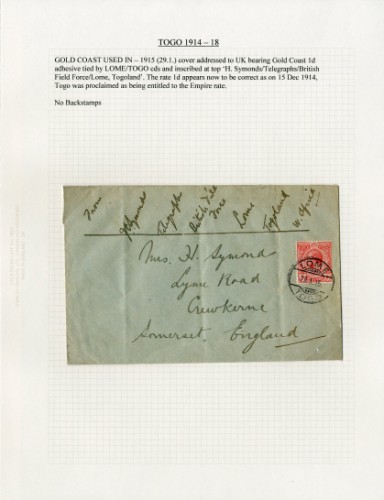 TOGO 1914 – 18
GOLD COAST USED IN – 1915 (29.1.) cover addressed to UK bearing Gold Coast 1d
adhesive tied by LOME/TOGO cds and inscribed at top 'H. Symonds/Telegraphs/British
Field Force/Lome, Togoland'. The rate 1d appears now to be correct as on 15 Dec 1914,
Togo was proclaimed as being entitled to the Empire rate.
No Backstamps
From
H Symonds
Telegraphs
British Field
Force
Lome
Togoland
W. Africa
Mrs. H. Symond
Lyme Road
Crewkerne
Somerset, England
LOME
TOGO